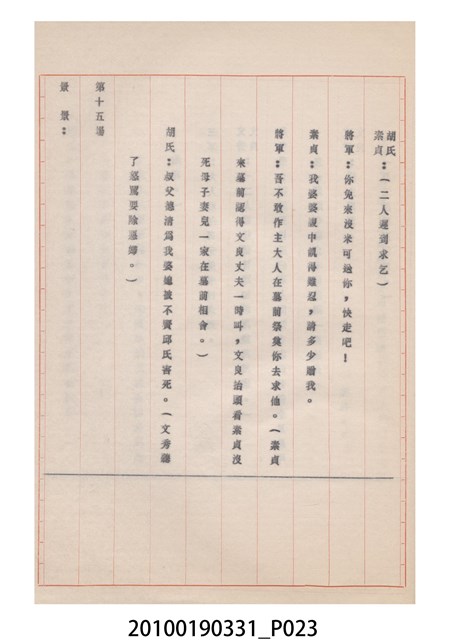 胡氏
素貞：（二人運到求乞）
將軍：你免來沒米可通你，快走吧！
素貞：我婆婆肚中飢得難忍，請多少贈我。
將軍：吾不敢作主大人在墓前祭奠你去求他。（素貞
來墓前認得文良丈夫一時叫，文良治頭看素貞沒
死母子妻兒一家在墓前相會。）
胡氏：叔父德清為我婆媳被不賣邱氏害死。（文秀聽
了怒罵要除惡婦。）
第十五場
景：
20100190331_P023